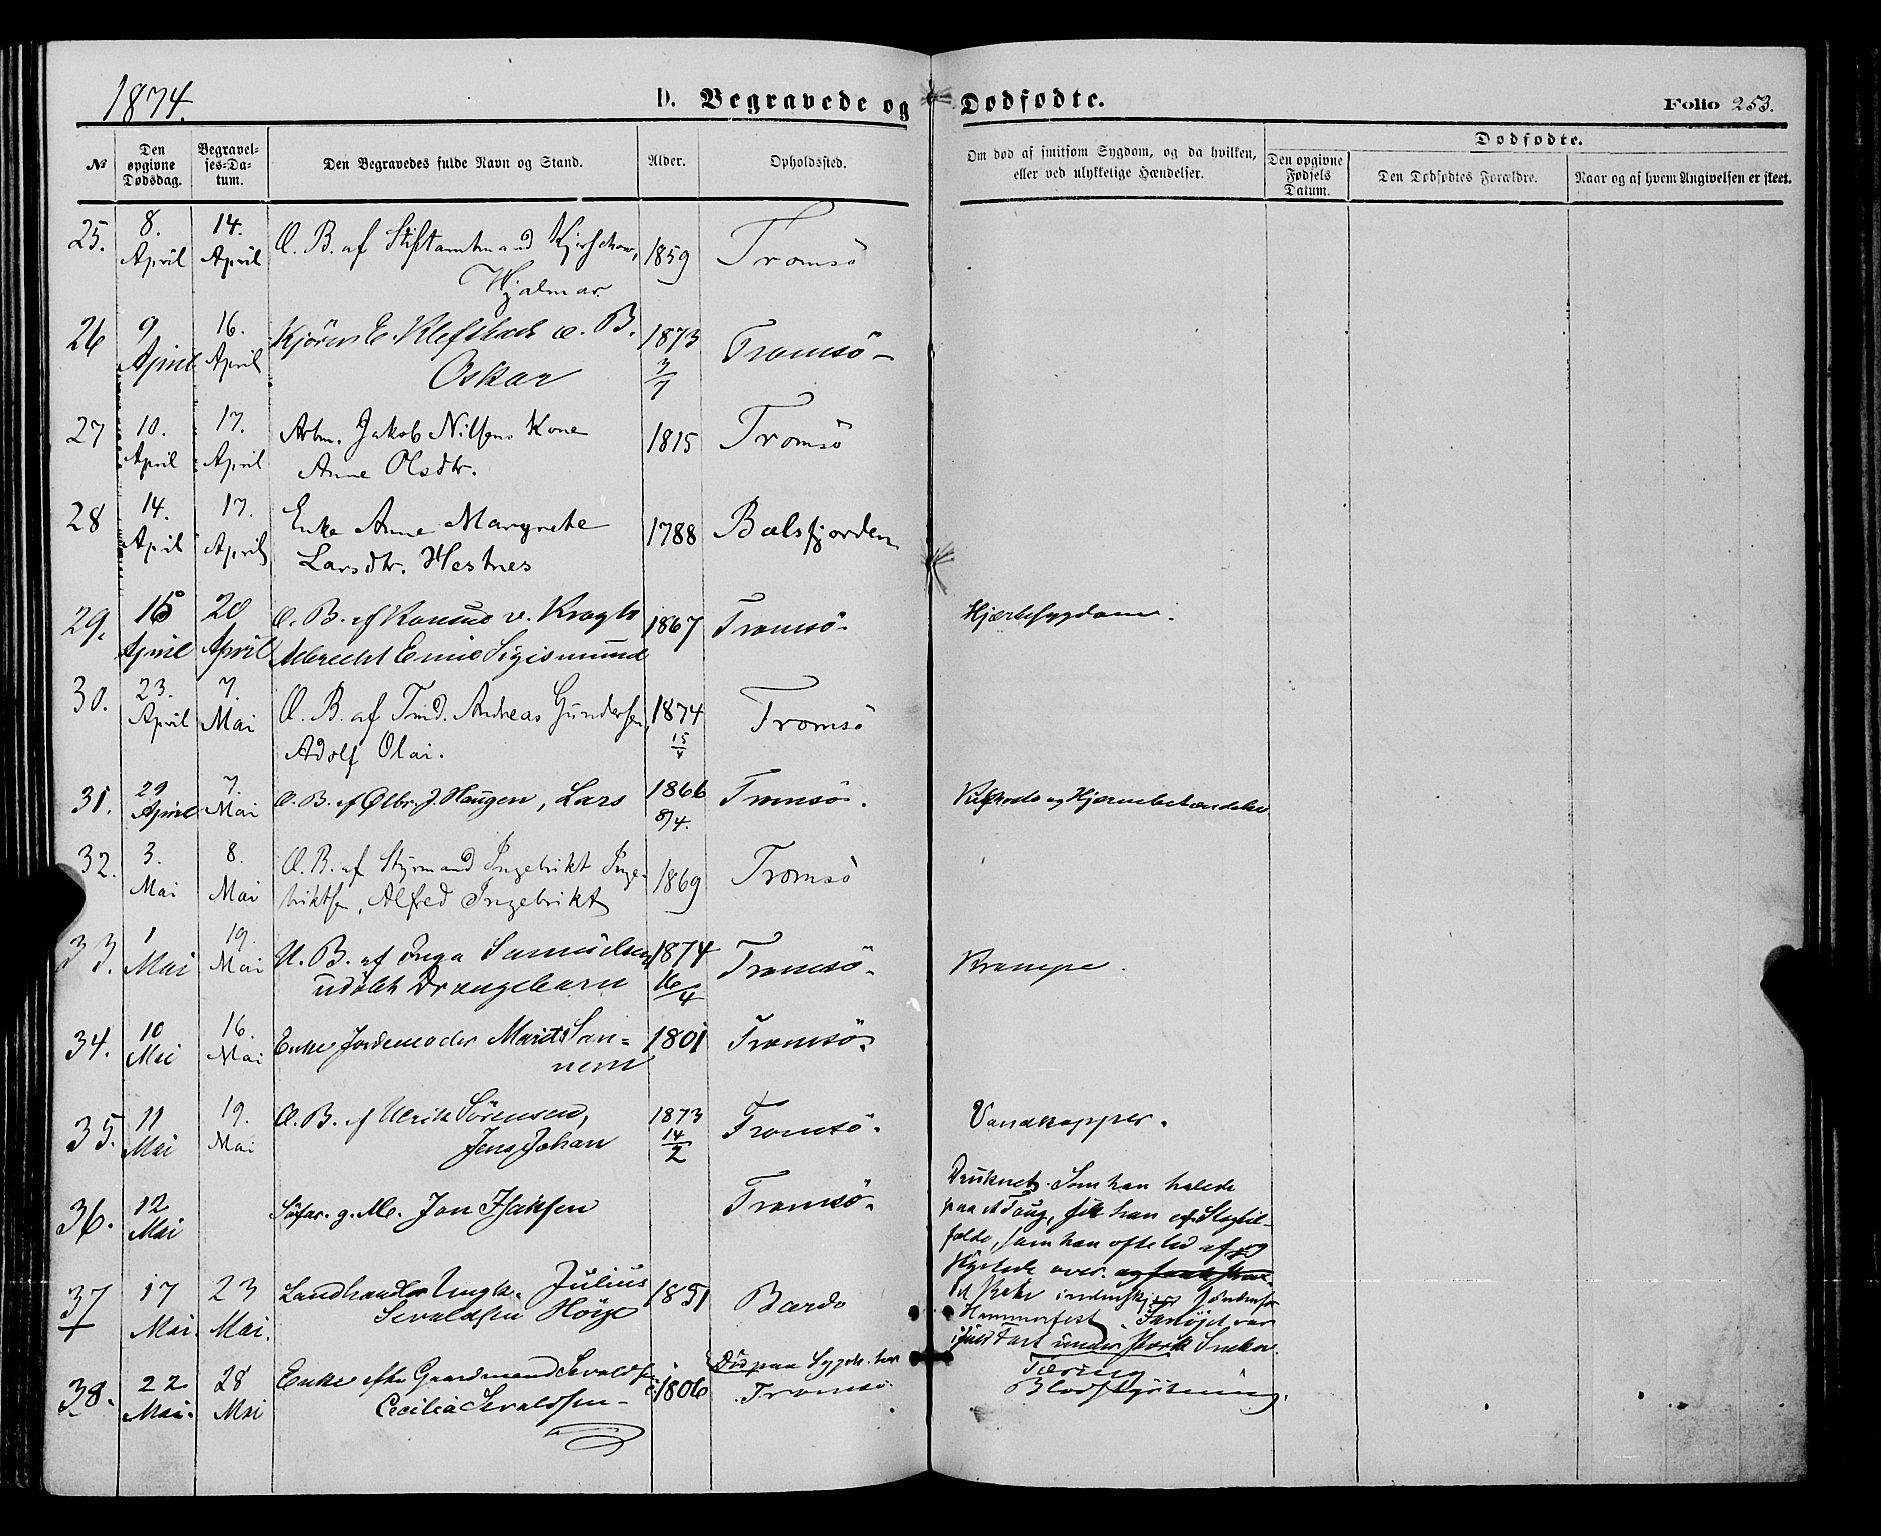 1874.
D. Begravede og Dødfødte.
Folio 253.
№
Den opgivne Dødsdag.
Begravelses-Datum.
Den Begravedes fulde Navn og Stand.
Alder.
Opholdssted.
Om død af smitsom Sygdom, og da hvilken,
eller ved ulykkelige Hændelser.
Den opgivne Fødsels Datum.
Dødfødte.
Den Dødfødtes Forældre.
Naar og af hvem Angivelsen er skeet.
25. 8. April 14. April Æ. B. af Stiftamtmand Kjerschow, Hjalmar. 1859 Tromsö
26 9 April 16. April Kjörer E. Klefstads æ. B. Oskar 1873 3/7 Tromsö
27 10. April 17. April Arbm. Jakob Nilsens Kone Anne Olsdtr. 1815 Tromsö
28 14. April 17. April Enke Anne Margrete Larsdtr. Hestnes 1788 Balsfjorden
29. 15 April 20 April Æ. B. af Konsul v. Krogh Albrecht Emil Sigismund 1867 Tromsö. Hjertesygdom.
30. 23. April 7. Mai Æ. B. af Tmd. Andreas Gundersen, Adolf Olai. 1874 15/4 Tromsö
31. 29 April 7. Mai Æ. B. af Ølbr. J. Haugen, Lars 1866 8/4. Tromsö. og Hjernebetændelse
32. 3. Mai 8. Mai Æ. B. af Styrmand Ingebrikt Ingebriktsen, Alfred Ingebrikt 1869 Tromsö
33. 1 Mai 19. Mai U. B. af Inga Samuelsen, udöbt Drengebarn 1874 16/4 Tromsö. Krampe.
34. 10 Mai 16. Mai Enke Jordemoder Marit Sannem 1801 Tromsö.
35. 11 Mai 19. Mai Æ. B. af Ulrik Sörensen, Jens Johan 1873 14/2 Tromsö. Vandkopper.
36. 12 Mai Söfar. g. M. Jon Isaksen Tromsö. Druknet. Som han halede
paa et Toug, fik han et Slagtil-
fælde, som han ofte led af og
styrtede over.
Hammerfest. Fartöjet var
i fuld Fart under stærk Snekov.
37 17 Mai. 23 Mai. Landhandler Ungk. Julius Sevaldsen Höije 1851 Bardo Tæring
38. 22 Mai. 28 Mai Enke efter Gaardmand Sevaldsen Cecilia Sevaldsen 1806 Död paa Sygeh. her Tromsö Blodstyrtning.